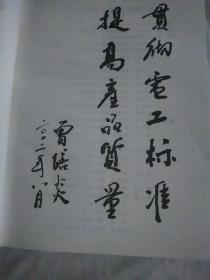 贯彻电工标准
提高產品質量
曾培炎
二〇〇二年八月